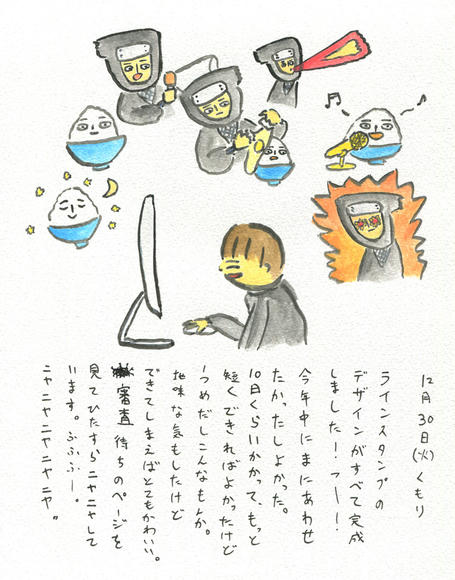 12月30日(火)くもり
ラインスタンプの
デザインがすべて完成
しました!フーー!
今年中にまにあわせ
たかったしよかった。
10日くらいかかって、もっと
短くできればよかったけど
1つめだしこんなもんか。
地味な気もしたけど
できてしまえばとてもかわいい。
審査待ちのページを
見てひたすらニヤニヤして
います。ぶふふー。
ニヤニヤニヤニヤ。